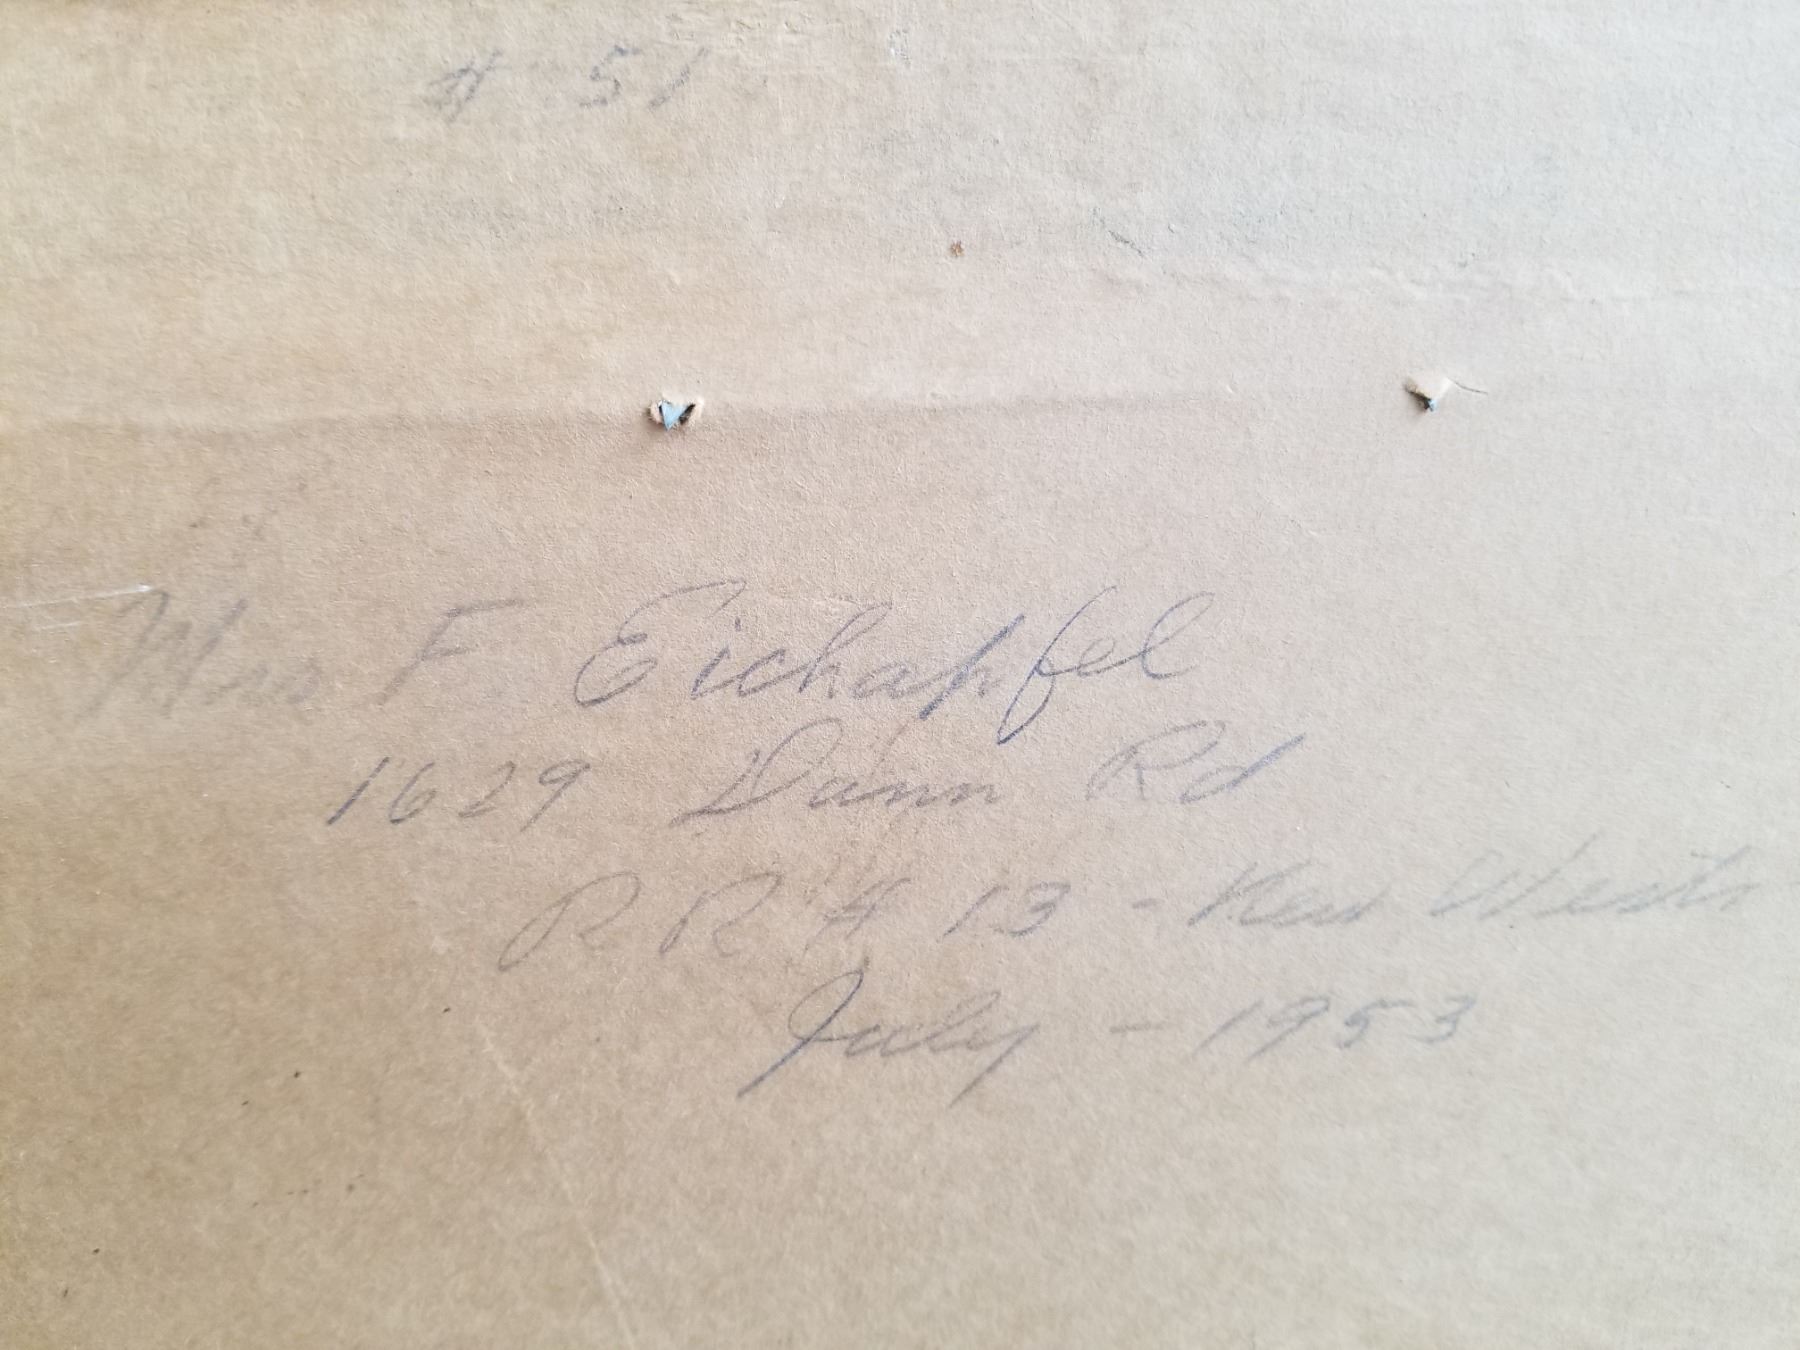 # 51
Mrs F. Eichapfel
1629 Dann Rd
R R # 13 - New Westr
July - 1953